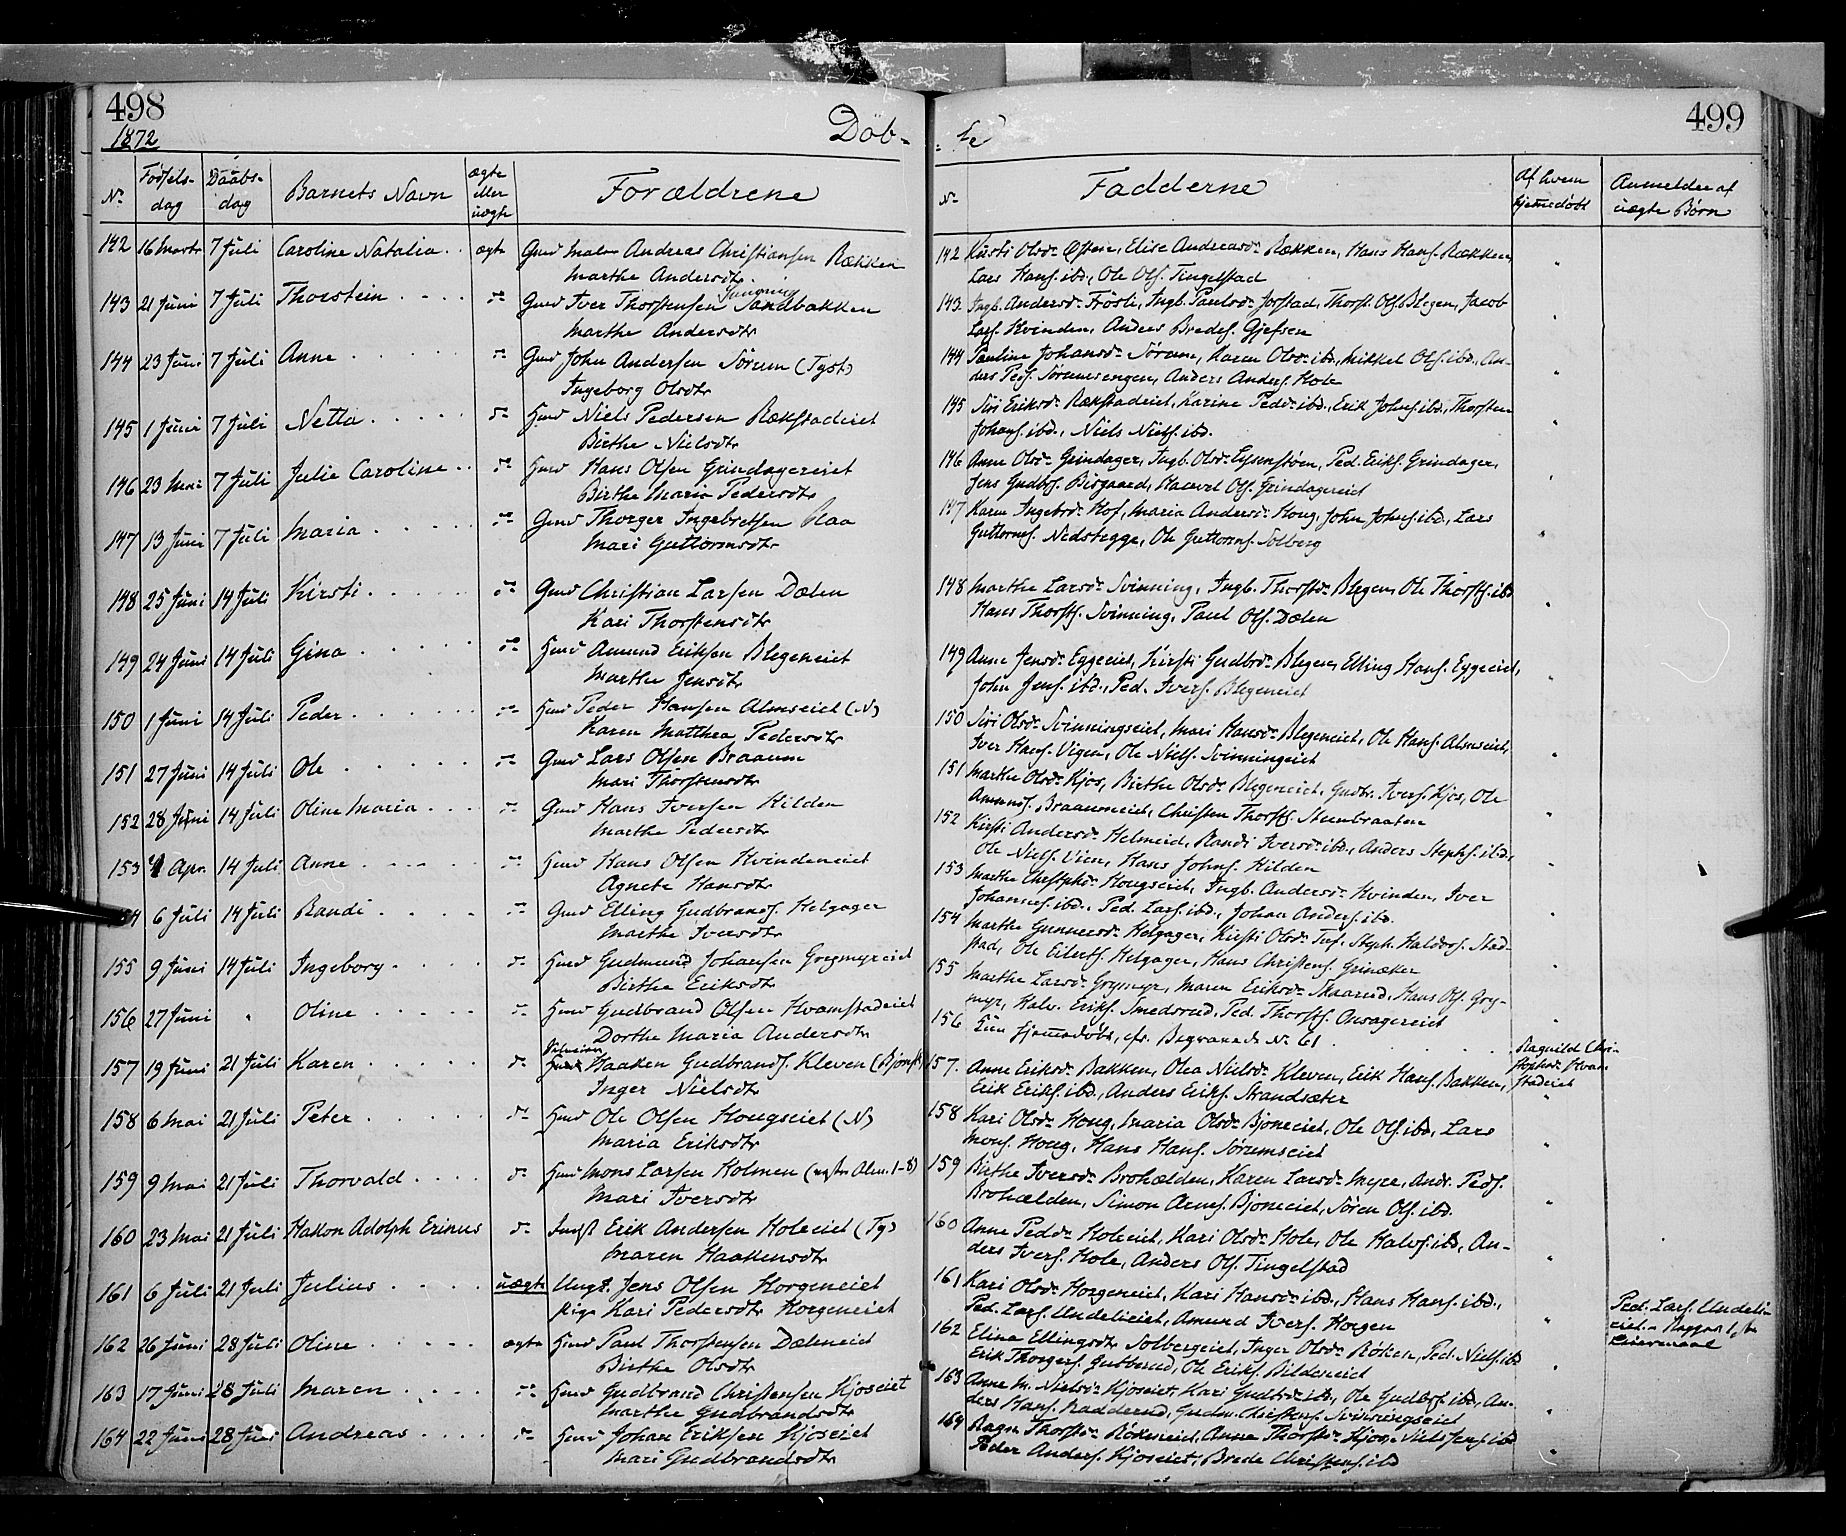 498
1872
Döb-
No
Fødsels-
dag
Daabs-
dag
Barnets Navn
ægte
eller
uægte
Forældrene
142 16 Marts 7 Juli Caroline Natalia . . ægte Gmd Andreas Christiansen Rækken
Marthe Andersdtr
143 21 Juni 7 Juli Thorstein . . . . do Gmd Iver Thorstensen Sandbakken
Marthe Andersdtr
144 23 Juni 7 Juli Anne . . . . . do Gmd John Andersen Sörum (Tgst)
Ingeborg Olsdtr
145 1 Juni 7 Juli Netta . . . . . do Hmd Niels Pedersen Rækstadeiet
Birthe Nielsdtr
146 23 Mai 7 Juli Julie Caroline . . do Hmd Hans Olsen Grindagereiet
Birthe Maria Pedersdtr
147 13 Juni 7 Juli Maria . . . . . do Gmd Thorger Ingebretsen Blaa
Mari Guttormsdtr
148 25 Juni 14 Juli Kirsti . . . . . do Gmd Christian Larsen Dælen
Kari Thorstensdtr
149 24 Juni 14 Juli Gina . . . . . do Hmd Amund Eriksen Blegeneiet
Marthe Jensdtr
150 1 Juni 14 Juli Peder . . . . . do Hmd Peder Hansen Almseiet (N)
Karen Matthea Pedersdtr
151 27 Juni 14 Juli Ole . . . . . do Gmd Lars Olsen Braaum
Mari Thorstensdtr
152 28 Juni 14 Juli Oline Maria . . . do Gmd Hans Iversen Kilden
Marthe Pedersdtr
153 4 Apr. 14 Juli Anne . . . . . do Hmd Hans Olsen Kvindeneiet
Agnete Hansdtr
154 6 Juli 14 Juli Randi . . . . do Gmd Elling Gudbrands. Helgager
Marthe Iversdtr
155 9 Juni 14 Juli Ingeborg . . . . do Hmd Gudmund Johansen Grymyreiet
Birthe Eriksdtr
156 27 Juni " Oline . . . . . do Hmd Gudbrand Olsen Kvamstadeiet
Dorthe Maria Andersdtr
157 19 Juni 21 Juli Karen . . . . do Haaken Gudbrands. Kleven
Inger Nielsdtr
158 6 Mai 21 Juli Peter . . . . . do Hmd Ole Olsen Hougseiet (N)
Maria Eriksdtr
159 9 Mai 21 Juli Thorvald . . . . do Hmd Mons Larsen Kolmen
Mari Iversdtr
160 23 Mai 21 Juli Hakon Adolph Erinus do Indst Erik Andersen Holeeiet (Tg)
Maren Haakensdtr
161 6 Juli 21 Juli Julius . . . . uægte Ungk. Jens Olsen Horgeneiet
Pige Kari Pedersdtr Horgeneiet
162 26 Juni 28 Juli Oline . . . . . ægte Hmd Paul Thorstensen Dæleneiet
Birthe Olsdtr
163 17 Juni 28 Juli Maren . . . . do Hmd Gudbrand Christensen Kjoseiet
Marthe Gudbrandsdtr
164 22 Juni 28 Juli Andreas . . . . do Hmd Johan Eriksen Kjoseiet
Mari Gudbrandsdtr
499
te
No
Fadderne
Af hvem
hjemmedöbt
Anmelder af
uægte Börn
142 Kirsti Olsdr Östen, Elise Andreasdr Rækken, Hans Hans. Rækken,
Lars Hans. ibd., Ole Ols. Tingelstad
143. Ingb. Andersdr Fröslie, Ingb. Paulsdr Jorstad, Thorst. Ols. Blegen, Jacob
Lars. Kvinden, Anders Bredes. Gjefsen
144 Pauline Johansdr Sörum, Karen Olsdr ibd., Mikkel Ols. ibd., An-
ders Peds. Sörumsengen, Anders Anders. Hole
145 Siri Eriksdr Rækstadeiet, Karine Pedsdr ibd., Erik Johns. ibd., Thorsten
Johans. ibd., Niels Niels. ibd.
146 Anne Olsdr Grindager, Ingb. Olsdr Eysenstöen, Ped. Eriks. Grindager,
Jens Gudbs. Bisgaard, Halvel Ols. Grindagereiet
147 Karen Ingebrdr Hof, Maria Andersdr Houg, John Johns. ibd., Lars
Guttorms. Nedstegge, Ole Guttorms. Solberg
148 Marthe Larsdr Svinning, Ingb. Thorstdr Blegen, Ole Thorsts. ibd
Hans Thorsts. Svinning, Paul Ols. Dælen
149 Anne Jensdr Eggeeiet, Kirsti Gudbrdr Blegen, Elling Hans. Eggeeiet,
John Jens. ibd., Ped. Ivers. Blegeneiet
150 Siri Olsdr Svinningseiet, Mari Hansdr Blegeneiet, Ole Hans. Almseiet,
Iver Hans. Vigen, Ole Niels. Svinningeiet
151 Marthe Olsdr Kjos, Birthe Olsdr Blegeneiet, Gudbr. Ivers. Kjos, Ole
Amunds. Braaumeiet, Christen Thorsts. Steenbraaten
152 Kirsti Andersdr Helmeid, Randi Iversdr ibd., Anders Stephs. ibd.,
Ole Niels. Vien, Hans Johns. Kilden
153 Marthe Chrstphdr Hougseiet, Ingb. Andersdr Kvinden, Iver
Johannes. ibd., Ped. Lars. ibd., Johan Anders. ibd.
154 Marthe Gunnersdr Helgager, Kirsti Olsdr Steph. Haldors. Stad-
stad, Ole Eilerts. Helgager, Hans Christens. Grinaker
155 Marthe Larsdr Grymyr, Maren Eriksdr Skaarud, Hans Ols. Gry-
myr, Halv. Eriks. Smedsrud, Ped. Thorsts. Onsagereiet
156 Kun hjemmedöbt, cfr. Begravede No 61 . . . . Ragnild Chri-
stophsdr Kvam-
stadeiet
157. Anne Eriksdr Bakken, Olea Nielsdr Kleven, Erik Hans. Bakken,
Erik Eriks. ibd., Anders Eriks. Strandsæter
158 Kari Olsdr Houg, Maria Olsdr Bjoneeiet, Ole Ols. ibd., Lars
Mons. Houg, Hans Hans. Sörumseiet
159 Birthe Iversdr Brohælden, Karen Larsdr Myre, Andr. Peds.
Brohælden, Simon Arnes. Bjoneeiet, Sören Ols. ibd.
160 Anne Pedsdr Holeeiet, Kari Olsdr Hole, Ole Halvs. ibd., An-
ders Ivers. Hole, Anders Ols. Tingelstad
161 Kari Olsdr Horgeneiet, Kari Hansdr ibd., Hans Hans. ibd.,
Ped. Lars. Undelieiet, Amund Ivers. Horgen
Ped. Lars. Undeli-
eiet
162 Elina Ellingsdtr Solbergeiet, Inger Olsdr Röken, Ped. Niels. ibd
Erik Thorgers. Gutterud, Ole Eriks. Bildeneiet
163 Anne M. Nielsdr Kjoseiet, Kari Gudbrdr ibd., Ole Gudbrs. ibd., An-
ders Hans. Radderud, Gudm. Christens. Svinningseiet
164 Ragn. Thorstdr Rökeneiet, Anne Thorstdr Kjos, Niels Jens. ibd
Peder Anders. Kjoseiet, Brede Christens. ibd